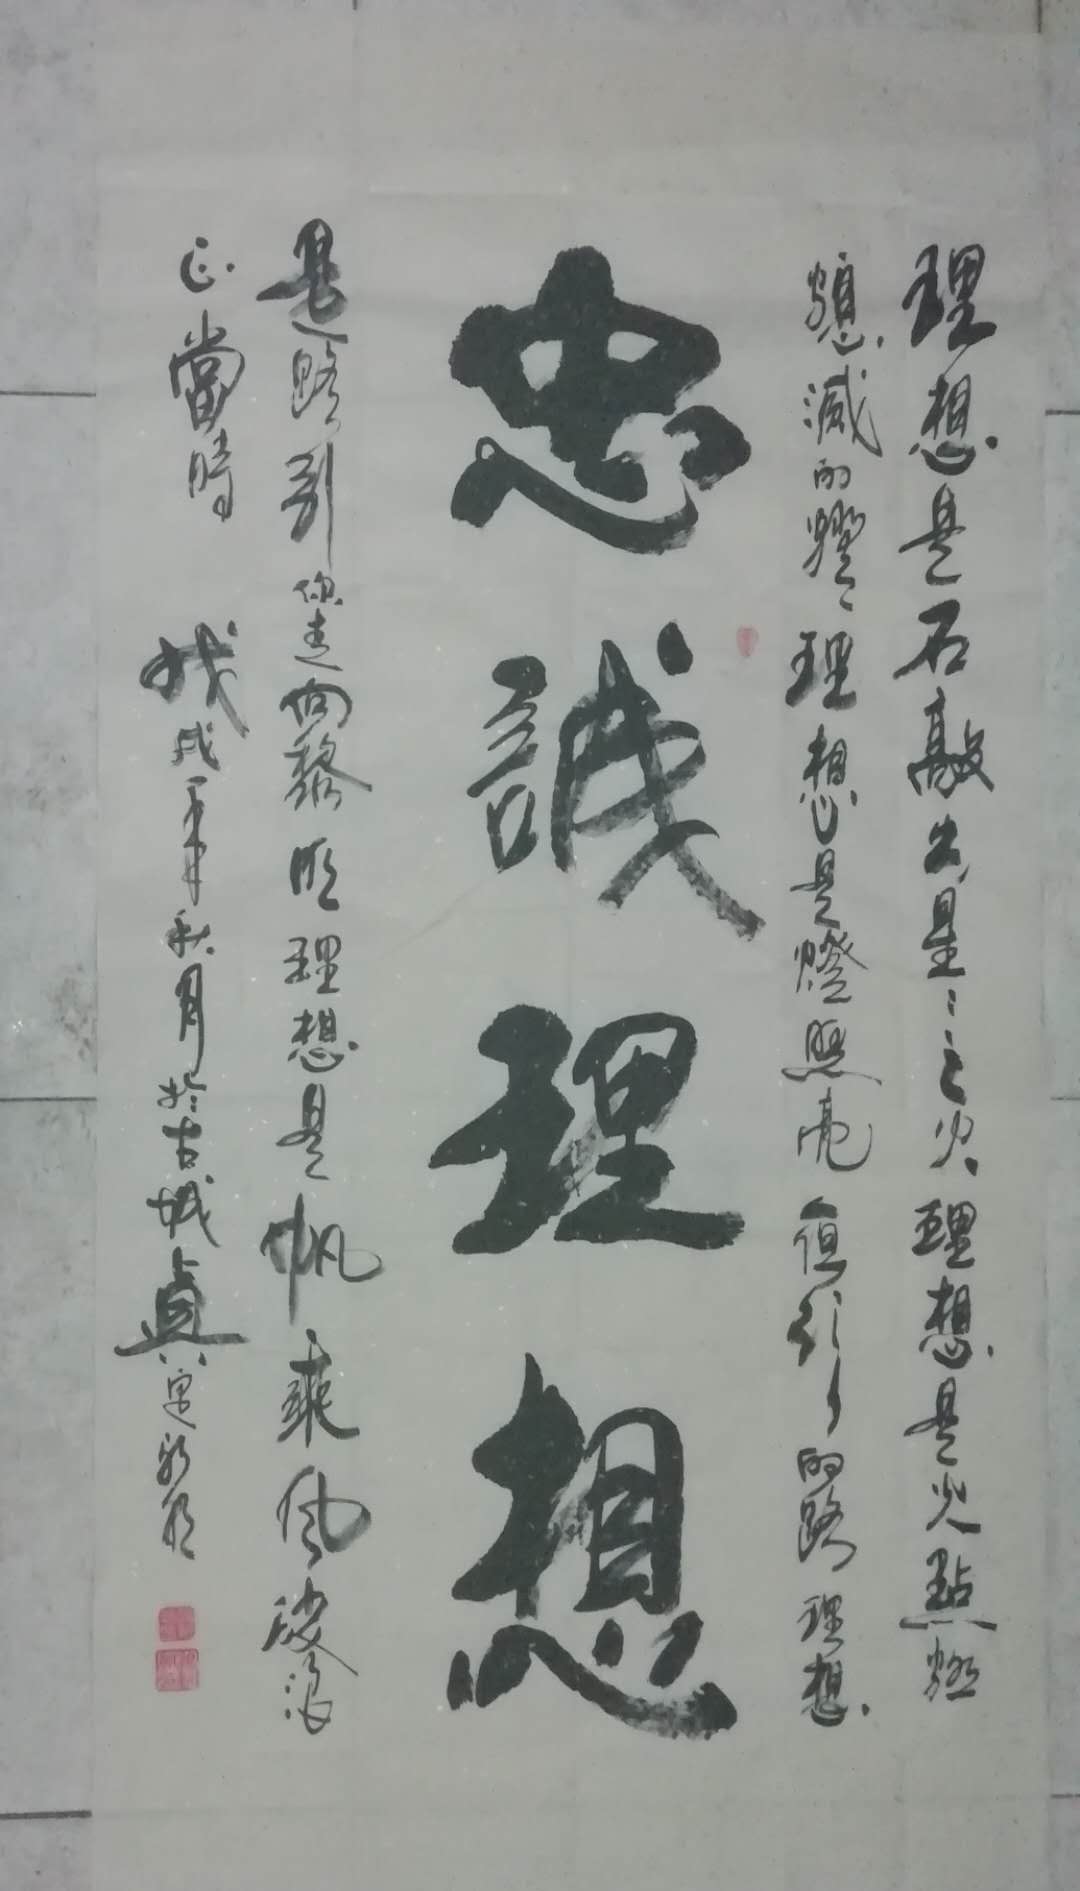 理想是石敲出星星之火理想是火點燃
熄滅的燈理想是燈照亮行的路理想
忠誠理想
是路引你走向黎明理想是帆乘風破浪
正當時
戊戌年秋月於古城真定